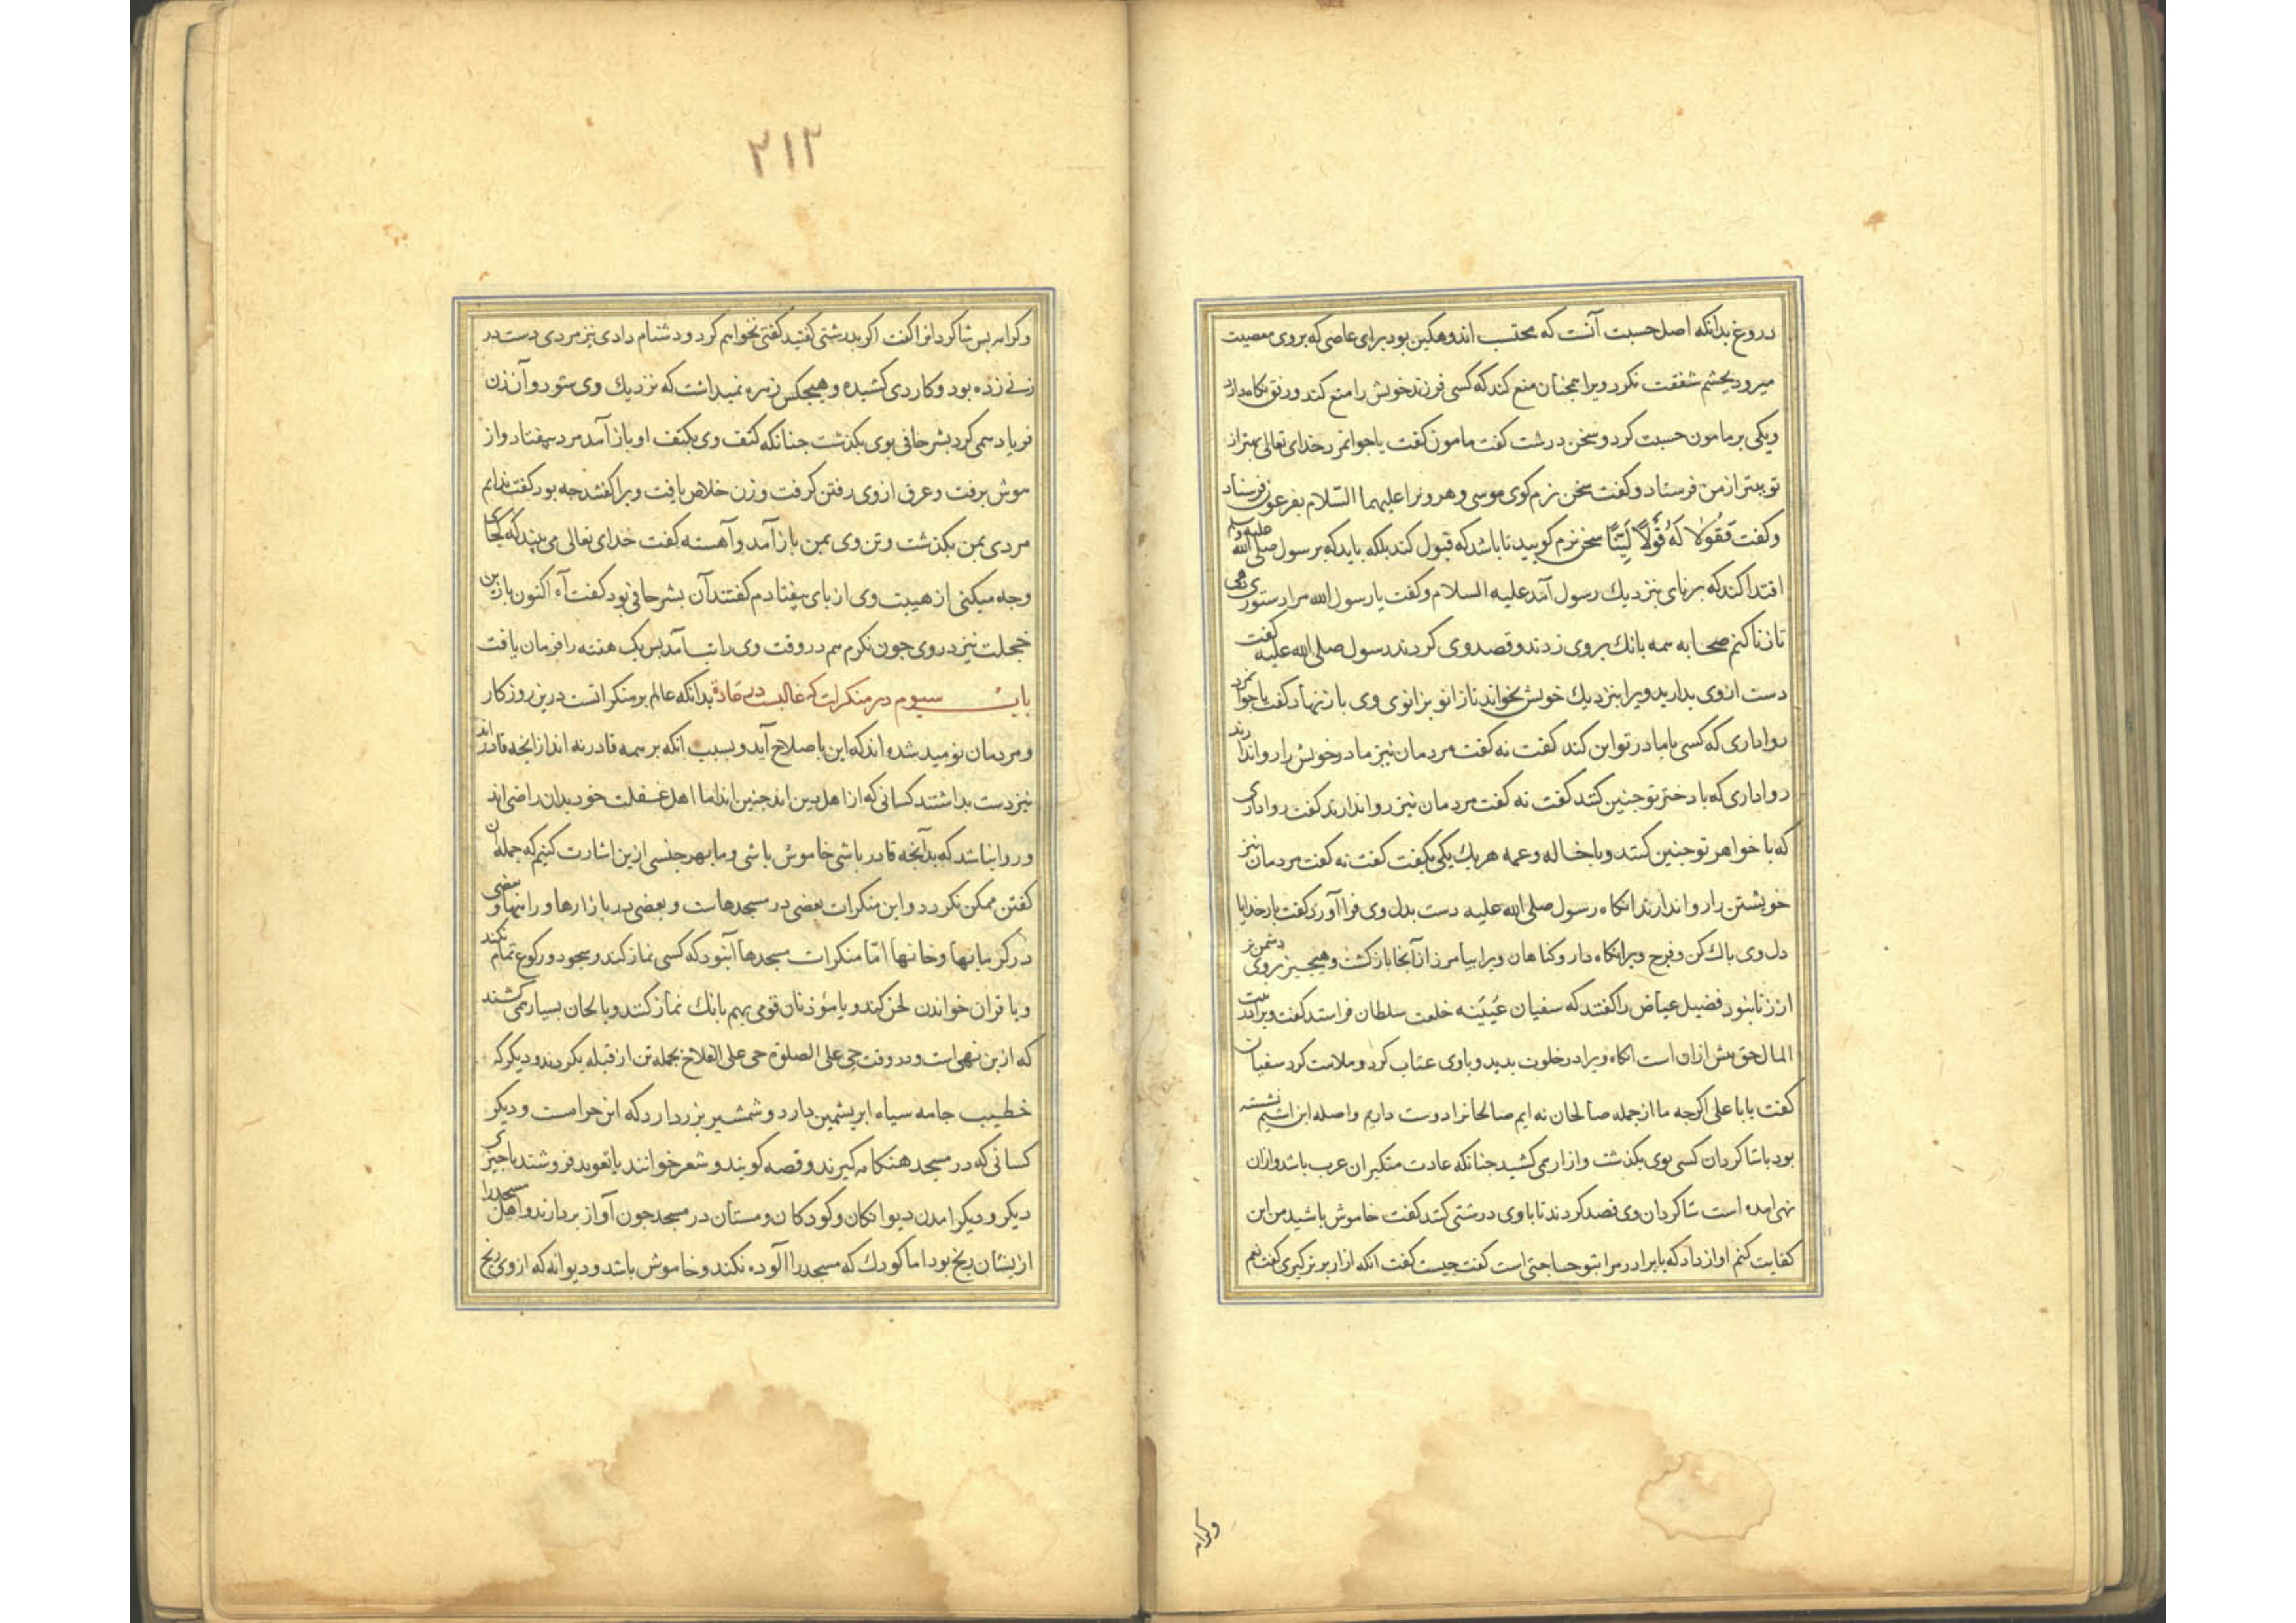 دروغ بدانکه اصل حسبت آنست که محتسب اندوهکین بود برای عاصی که بروی معصیت
میرود بچشم شفقت نکرد ویرا همجنان منع کند که کسی فرزند خویش را منع کند ورفق نکاه دارد
ویکی بر مامون حسبت کرد و سخن درشت کفت مامون کفت یا جوانمرد خدای تعالی بهتر از
تو ببتر از من فرستاد و کفت سخن نرم کوی موسی و هرونرا علیهما السلام بفرعون فرستاد
وکفت فَقُولَا لَهُ قَوْلًا لَيِّنًا سخن نرم کویید تا باشد که قبول کند بلکه باید که برسول صلی الله علیه وسلم
اقتدا کند که برنای بنزدیك رسول آمد علیه السلام وکفت یا رسول الله مرا دستوری دهی
تا زنا کنم صحابه همه بانك بروی زدند و قصد وی کردند رسول صلی الله علیه کفت
دست ازوی بدارید ویرا بنزدیك خویش بخواند تا زانو بزانوی وی باز نهاد کفت یا جوانمرد
رواداری که کسی با مادر تو این کند کفت نه کفت مردمان نیز مادر خویش را روا ندارند
رواداری که با دختر تو جنین کنند کفت نه کفت مردمان نیز روا ندارند کفت رواداری
که با خواهر تو جنین کنند و با خاله و عمه هریك یکی بکفت کفت نه کفت مردمان نیز
خویشتن را روا ندارند انکاه رسول صلی الله علیه دست بدل وی فرا آورد کفت بار خدایا
دل وی باك کن و فرج ویرا نکاه دار و کناهان ویرا بیامرز از آنجا باز کشت و هیجیز بروی دشمن تر
از زنا نبود فضیل عیاض را کفتند که سفیان عُیَینه خلعت سلطان فراستد کفت ویرا در بیت
المال حق بیش از ان است انکاه ویرا در خلوت بدید و باوی عتاب کرد و ملامت کرد سفیان
کفت یابا علی اکرجه ما از جمله صالحان نه ایم صالحانرا دوست داریم و اصله ابن اشیم نشسته
بود با شاکردان کسی بوی بکذشت و ازار می کشید جنانکه عادت متکبران عرب باشد و ازان
نهی امده است شاکردان وی قصد کردند تا باوی درشتی کنند کفت خاموش باشید من این
کفایت کنم اواز داد که یا برادر مرا بتو حاجتی است کفت جیست کفت انکه ازار برتر کیری کفت نعم
وکرامه
۲۱۲
وکرامه بس شاکردانرا کفت اکر بدرشتی کفتید کفتی نخواهم کرد و دشنام دادی نیز مردی دست در
زنی زده بود و کاردی کشیده و هیجکس زهره نمیداشت که نزدیك وی شود و آن زن
فریاد همی کرد بشر حافی بوی بکذشت جنانکه کتف وی بکتف او باز آمد مرد بیفتاد و از
هوش برفت و عرق ازوی رفتن کرفت و زن خلاص یافت ویرا کفتند جه بود کفت ندانم
مردی بمن بکذشت و تن وی بمن باز آمد و آهسته کفت خدای تعالی می بیند که کجای
وجه میکنی از هیبت وی از بای بیفتادم کفتند آن بشر حافی بود کفت آه اکنون بازین
خجلت نیز دروی جون نکرم هم در وقت وی را تب آمد بس یک هفته را فرمان یافت
باب سیوم در منکرات که غالبست در عادة بدانکه عالم بر منکراتست درین روزکار
و مردمان نومید شده اند که این باصلاح آید و بسبب انکه بر همه قادر نه اند از انجه قادر اند
نیز دست بداشتند کسانی که از اهل دین اند جنین اند اما اهل غفلت خود بدان راضی اند
و روا نباشد که بدآنجه قادر باشی خاموش باشی و ما بهر جنسی ازین اشارت کنیم که جمله آن
کفتن ممکن نکردد و این منکرات بعضی در مسجدهاست و بعضی در بازارها و راهها و بعضی
در کرمابها و خانها امّا منکرات مسجدها آنبود که کسی نماز کند و سجود و رکوع تمام نکند
و یا قران خواندن لحن کند و یا مؤذنان قومی بهم بانك نماز کنند و بالحان بسیار همی کشند
که ازین نهی است و در وقت حی علی الصلوة حی علی الفلاح بجمله تن از قبله بکردند و دیکر که
خطیب جامه سیاه ابریشمین دارد و شمشیر بزر دارد که این حرامست و دیکر
کسانی که در مسجد هنکامه کیرند و قصه کویند و شعر خوانند یا تعوید فروشند یا جیزی
دیکر و دیکر امدن دیوانکان و کودکان و مستان در مسجد جون آواز بردارند و اهل مسجد را
ازیشان رنج بود اما کودك که مسجد را آلوده نکند و خاموش باشد و دیوانه که ازوی رنج